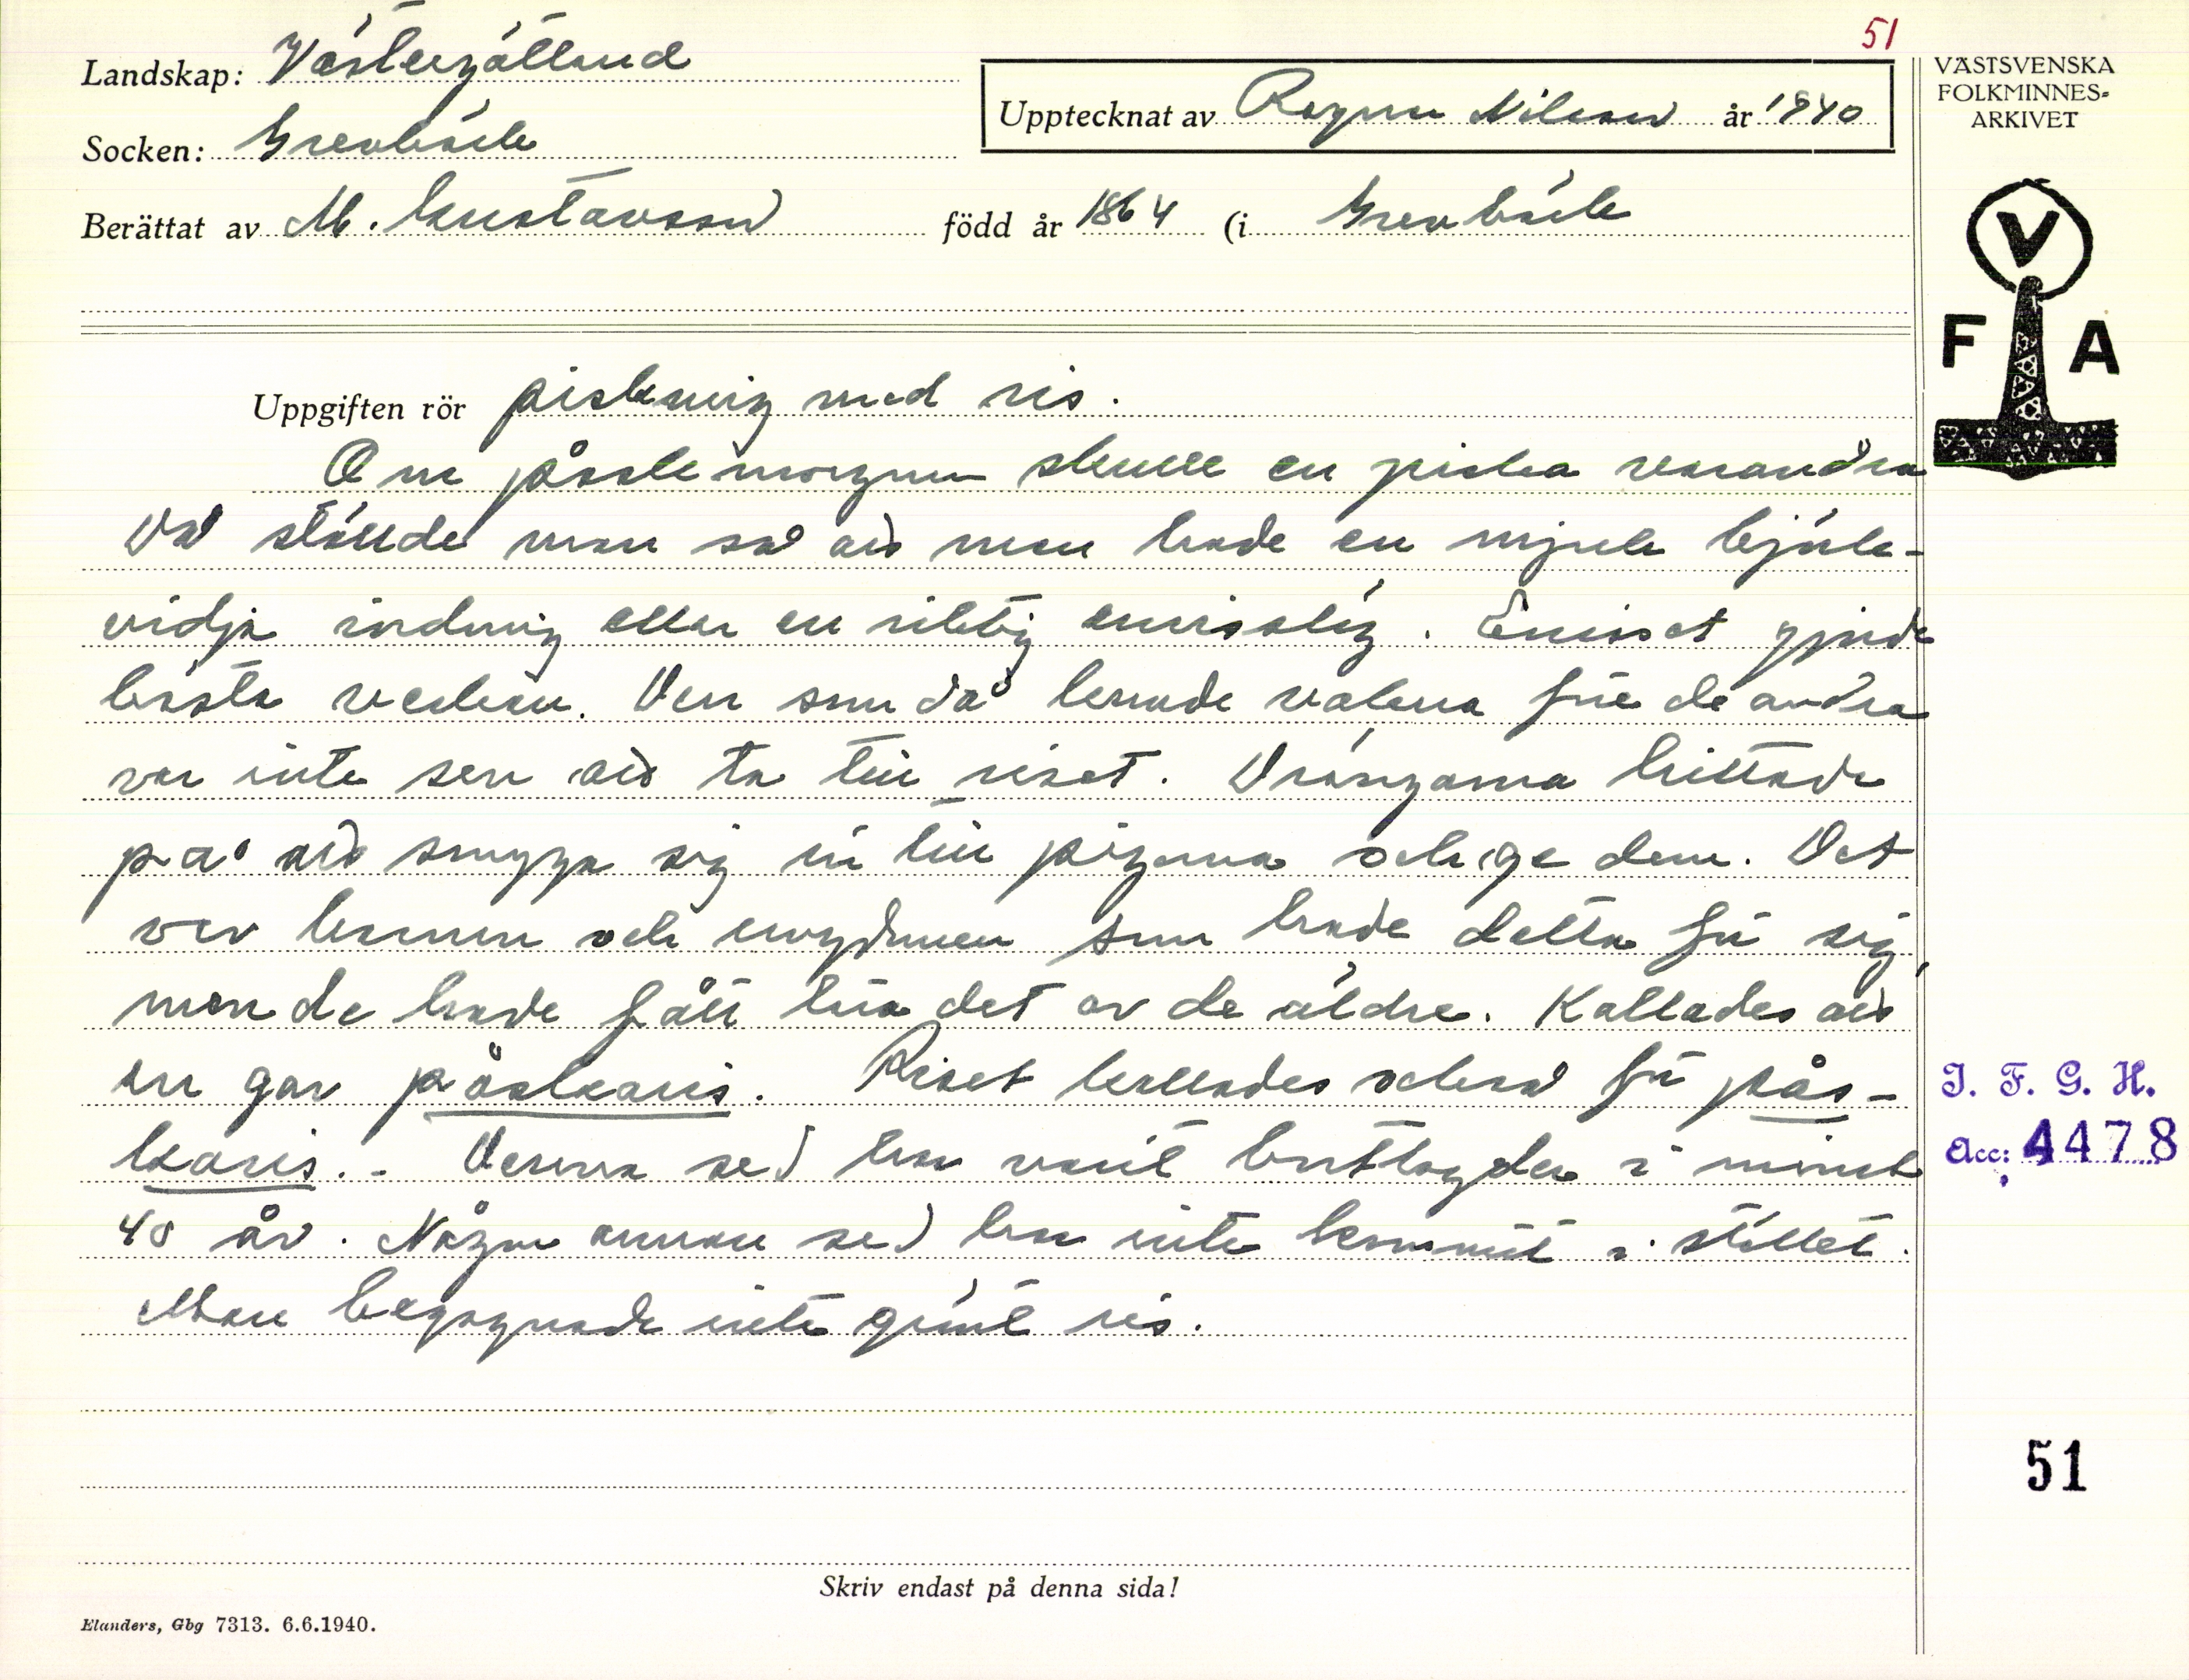 51
Landskap: Västergötland
Socken: Grevbäck
Upptecknat av Ragnar Nilsson år 1940
Berättat av M. Gustavsson född år 1864 (i Grevbäck
VÄSTSVENSKA
FOLKMINNES-
ARKIVET
V
F A
Uppgiften rör piskning med ris.
Om påskemorgnen skulle en piska varandra
Då ställde man så att man hade en mjuk björk-
vidja i ordning eller en riktig enrisslig. Eniset gjorde
bästa verkan. Den som då kunde vakna före de andra
var inte sen att ta till riset. Drängarna hittade
på att smyga sig in till pigorna och ge dem. Det
var barnen och ungdomen som hade detta för sig,
men de hade fått lära det av de äldre. Kallades att
en gav påskaris. Riset kallades också för pås-
karis. - Denna sed har varit borttagden i minst
40 år. Någon annan sed har inte kommit i stället.
Man begagnade inte grönt ris.
I. F. G. H.
Acc: 4478
51
Skriv endast på denna sida!
Elanders, Gbg 7313. 6.6.1940.